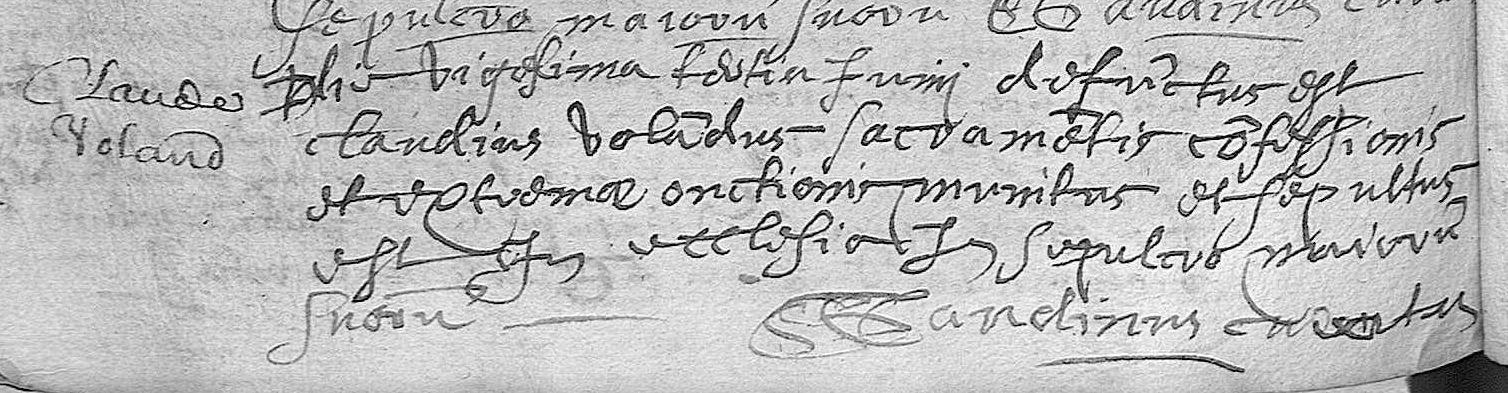 sepulcro maiorū suorū
Claude Voland
Die vigesima tertia Junij defūctus est
claudius volādus sacramētis cōfessionis
et extremæ onctionis munitus et sepultus
est In ecclesia In sepulcro maiorū
suorū Gaudinus curatus